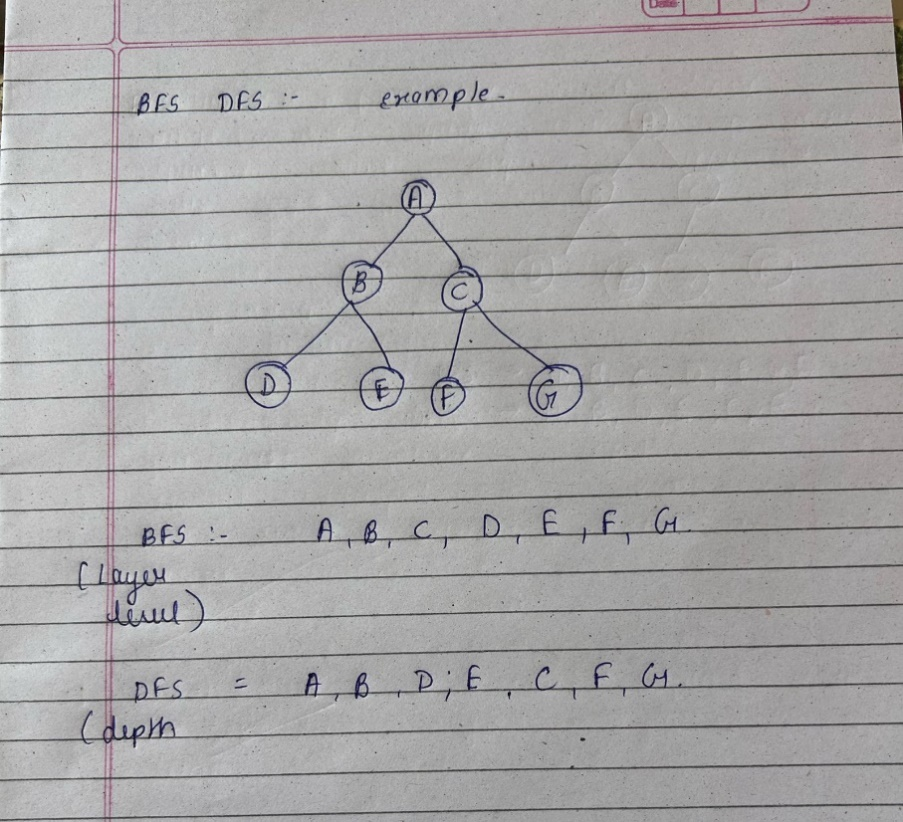 Date
BFS DFS :- example.
A
B C
D E F G
BFS :- A, B, C, D, E, F, G.
(Layer
level)
DFS = A, B, D; E, C, F, G.
(depth